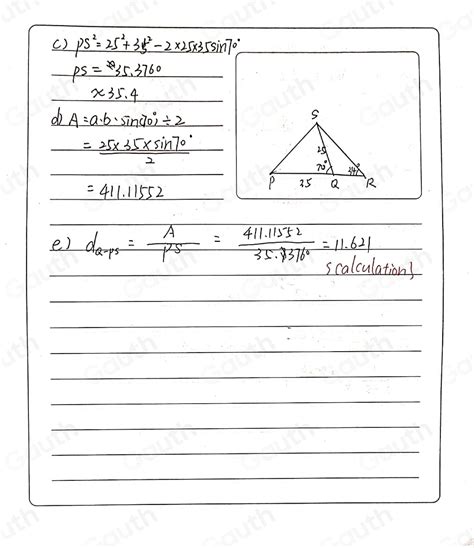 c) PS² = 25² + 35² - 2×25×35sin70°
PS = 35.3760
≈ 35.4
d) A = a·b·sin(70°) ÷ 2
= 25×35×sin70° / 2
= 411.11552
S
25
70°
34°
P 25 Q R
e) d Q-PS = A / PS = 411.11552 / 35.3760 = 11.621
{calculation}